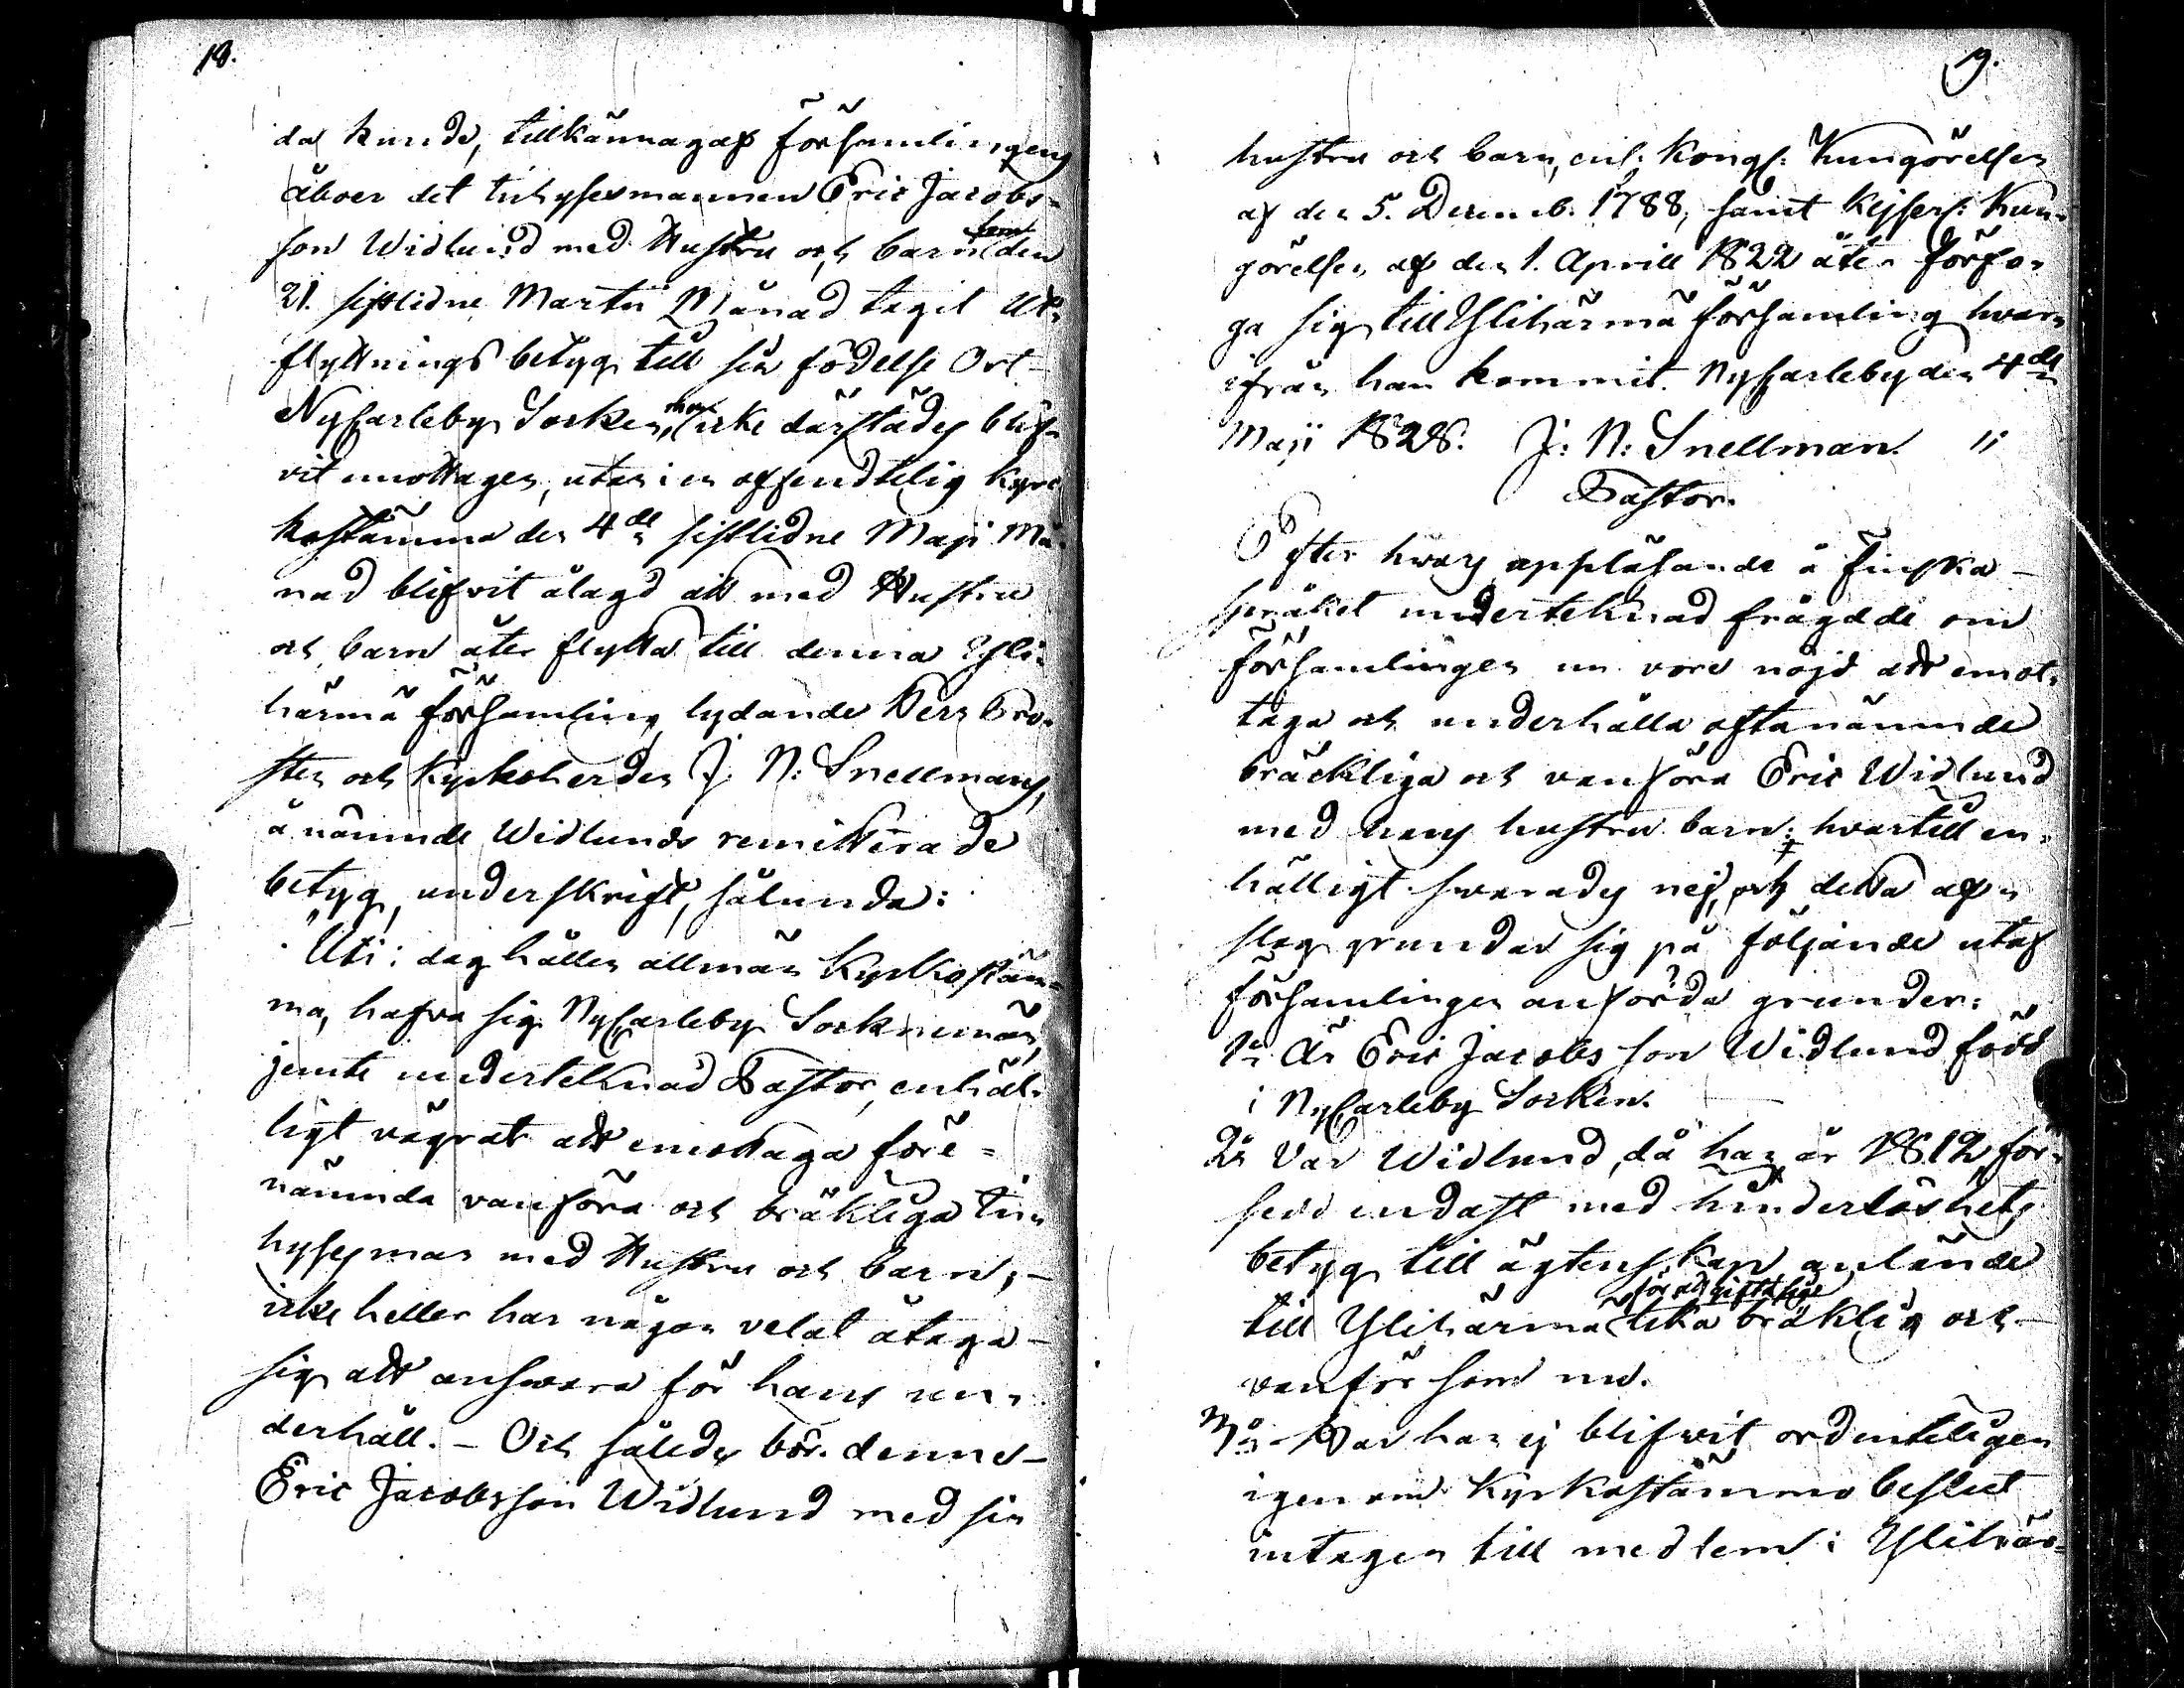 18.
da kunde, tillkännagaf församlingens
åboer det inhysesmannen Eric Jacobs-
son Widlund med Hustru och barn fem den
21. sistlidne Martii Månad tagit Ut-
flyttnings betyg till sin födelse Ort
NyCarleby Socken, men icke därstädes blif-
vit emottagen, utan i en offendtelig kyrc
kostämma den 4de sistlidne Maji Må-
nad blifvit ålagd att med Hustru
och barn åter flytta till denna Yli-
härmä församling, lydande Herr Pro-
sten och Kyrkoherden J. N: Snellmans,
å nämnde Widlunds remitterade
betyg, underskrift, sålunda:
"Uti i dag hållen allmän Kyrkostäm-
ma, hafva sig NyCarleby Socknemän
jemte undertecknad Pastor, enhäl-
ligt vägrat att emottaga före-
nämnda vanföra och bräkliga In-
hysesman med Hustru och barn, -
icke heller har någon velat åtaga -
sig att answara för hans un-
derhåll. - Och således bör denne -
Eric Jacobsson Widlund med sin
19.
hustru och barn, enl: Kongl: Kungörelsen
af den 5. Decemb. 1788, samt Kejserl: Kun-
görelsen af den 1. Aprill 1822 åter förfo-
ga sig till Ylihärmä församling hvar-
ifrån han kommit. NyCarleby den 4de
Maji 1828. J: N: Snellman. "
Pastor.
Efter hvars uppläsande å Finska -
språket undertecknad frågade om
församlingen nu vore nöjd att emot-
taga och underhålla oftanämnde
bräckliga och vanföra Eric Widlund
med hans hustru barn; hvartill en-
hälligt svarades nej, och detta af-
slag grundar sig på följande utaf
församlingen anförda grunder:
1:o Är Eric Jacobsson Widlund född
i NyCarleby Socken.
2:o Var Widlund, då han år 1812, för-
sedd endast med hinderlöshets
betyg till ägtenskap anlände
till Ylihärmä för att gifta sig lika bräklig och
vanför som nu.
3:o Har han ej blifvit ordenteligen
igenom Kyrkostämmo beslut
intagen till medlem i Ylihär-